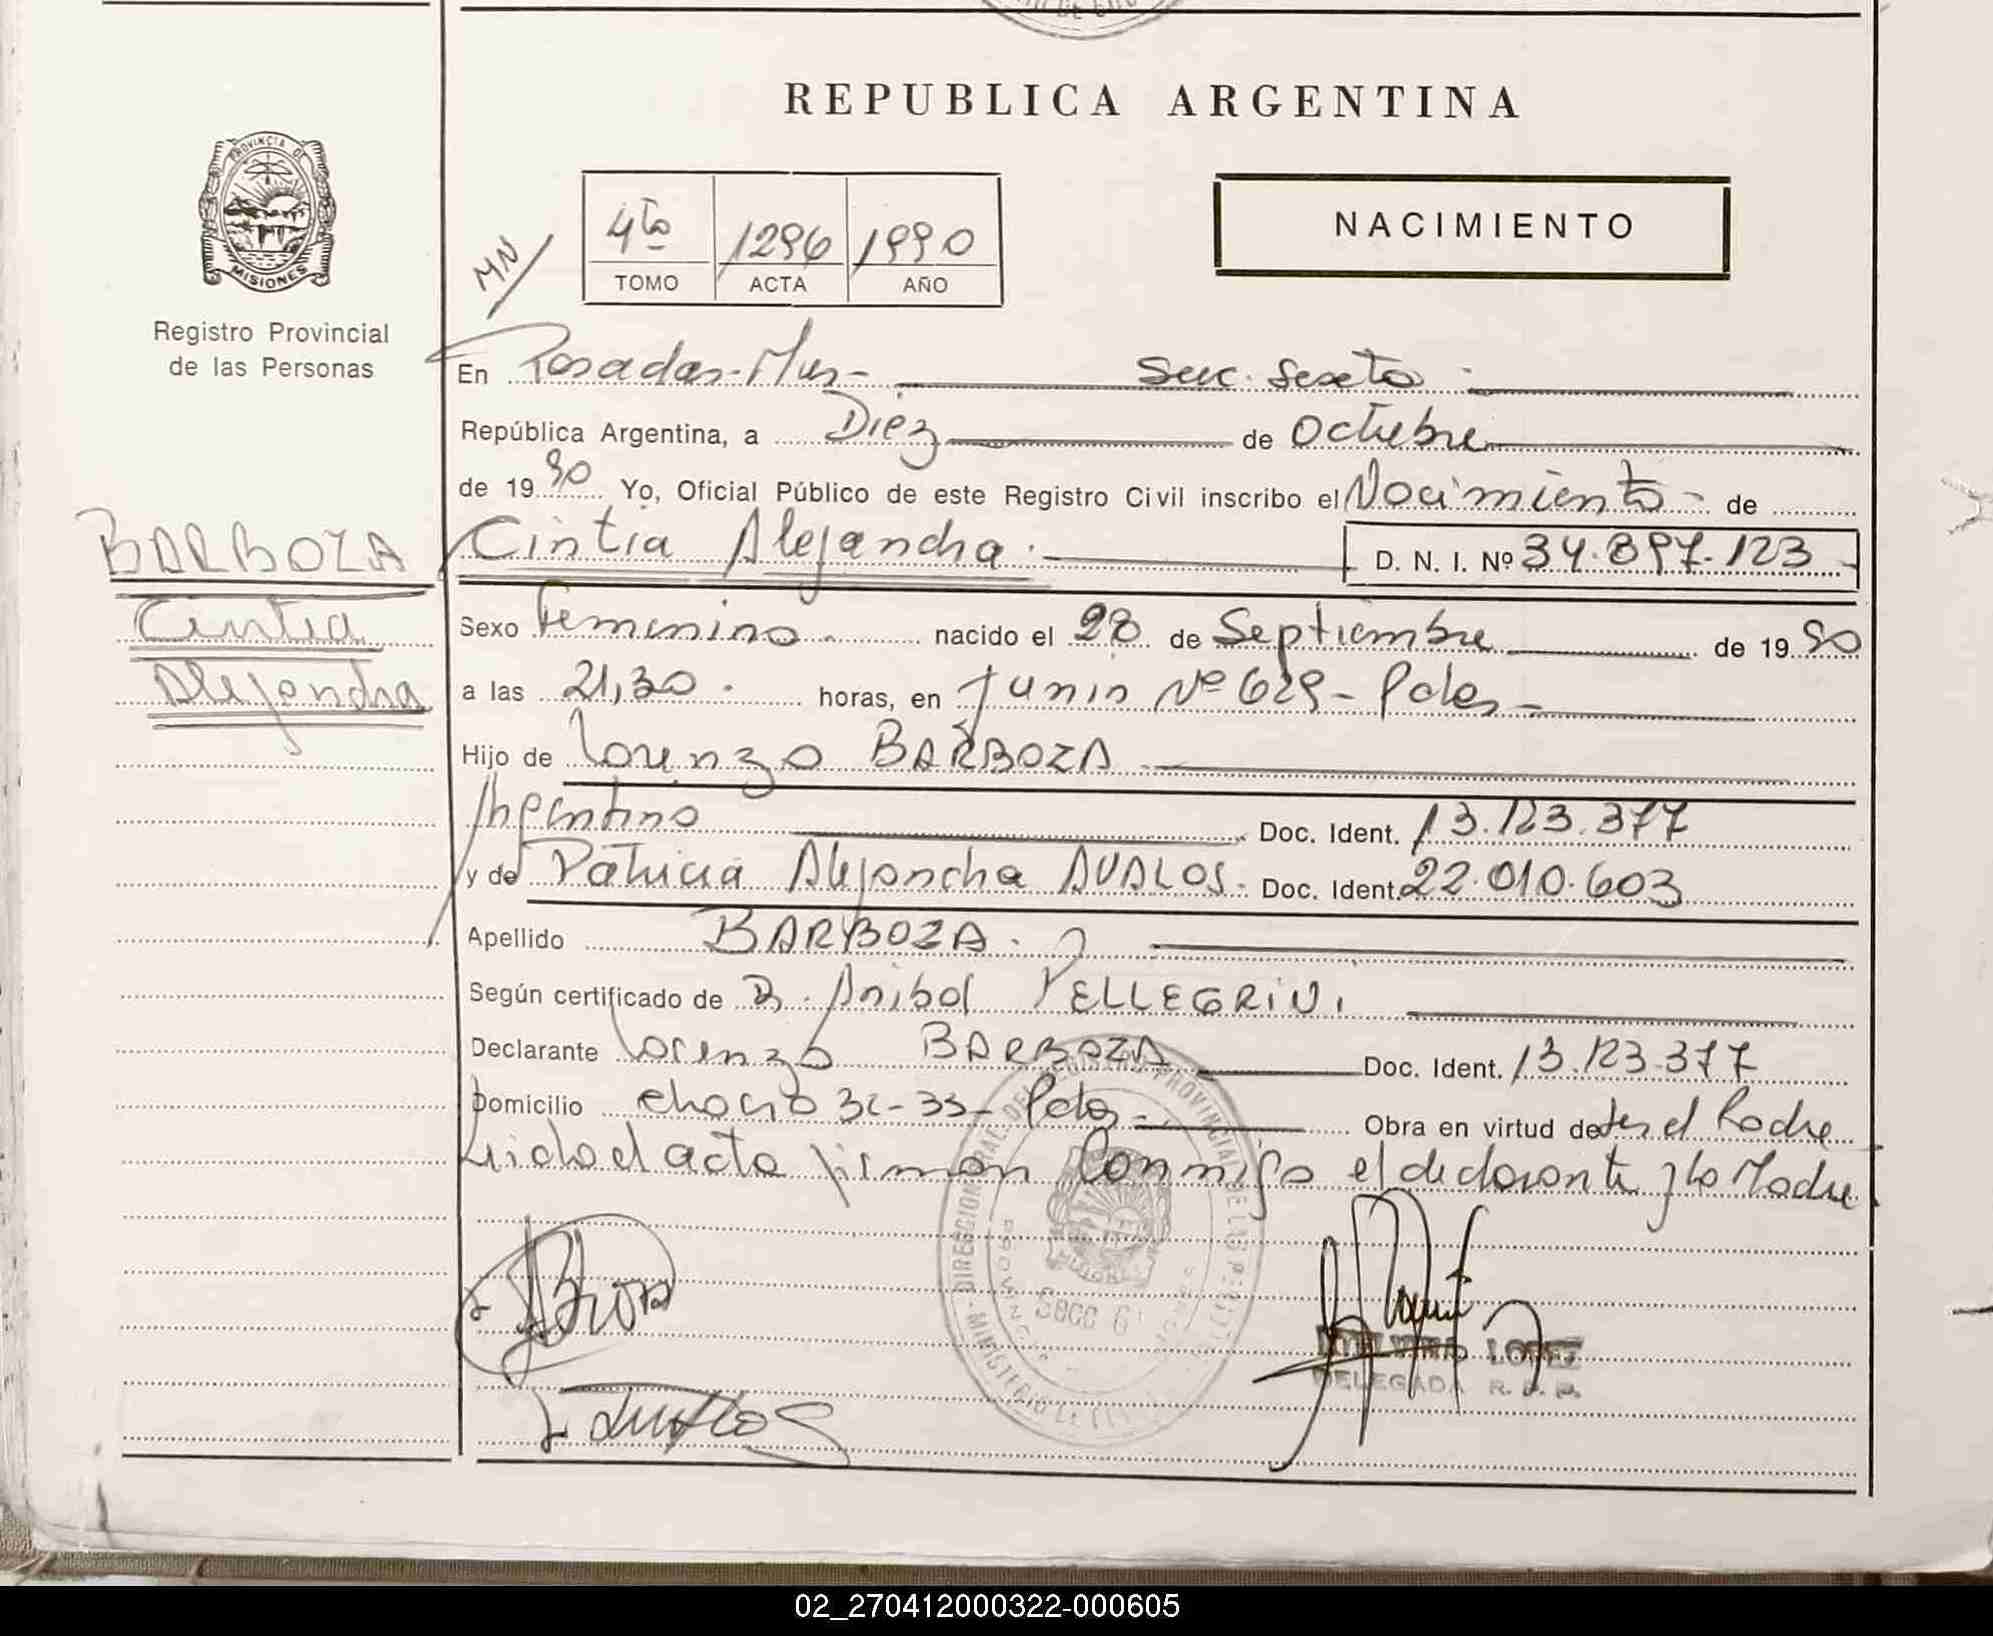 REPUBLICA ARGENTINA
PROVINCIA DE
MISIONES
Registro Provincial
de las Personas
MN
4to 1296 1990
TOMO ACTA AÑO
NACIMIENTO
En Posadas-Mnes- Secc. Sexta
República Argentina, a Diez de Octubre
de 1990 Yo, Oficial Público de este Registro Civil inscribo el Nacimiento - de
Cintia Alejandra. D. N. I. Nº 34.897.123
BARBOZA
Cintia
Alejandra
Sexo Femenino nacido el 28 de Septiembre de 1990
a las 21,30. horas, en Junin Nº 629- Pdas-
Hijo de Lorenzo BARBOZA
Argentino Doc. Ident. 13.123.377
y de Patricia Alejandra AVALOS. Doc. Ident. 22.010.603
Apellido BARBOZA.
Según certificado de D. Anibal PELLEGRINI.
Declarante Lorenzo BARBOZA Doc. Ident. 13.123.377
Domicilio chacra 32-33- Pdas- Obra en virtud de ser el Padre
Leida el acta firman conmigo el declarante y la Madre
SECC 6
LOPEZ
DELEGADA R. P. P.
02_270412000322-000605